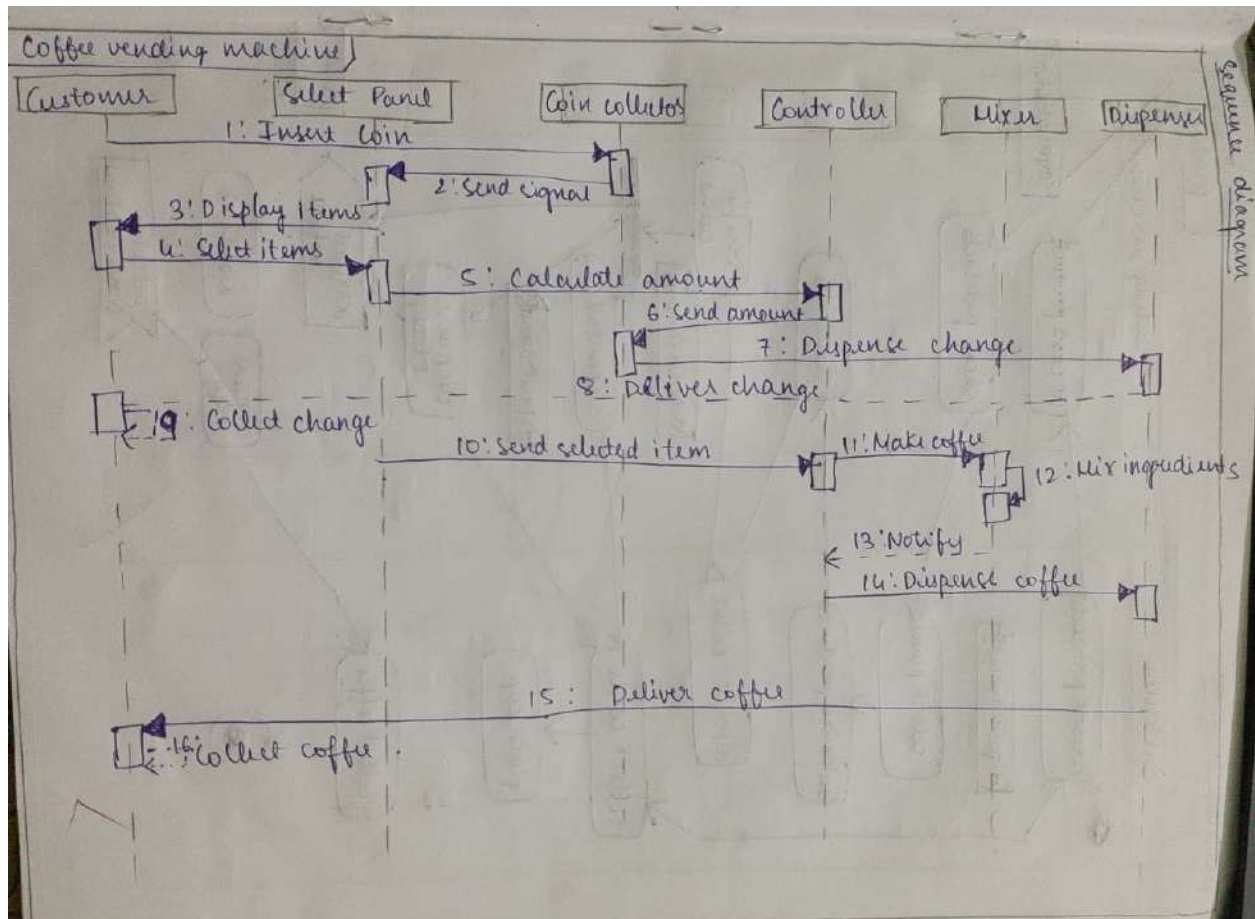 Coffee vending machine
Sequence diagram
Customer
Select Panel
Coin collector
Controller
Mixer
Dispenser
1: Insert Coin
2: Send signal
3: Display items
4: Select items
5: Calculate amount
6: Send amount
7: Dispense change
8: Deliver change
9: Collect change
10: Send selected item
11: Make coffee
12: Mix ingredients
13: Notify
14: Dispense coffee
15: Deliver coffee
16: Collect coffee.